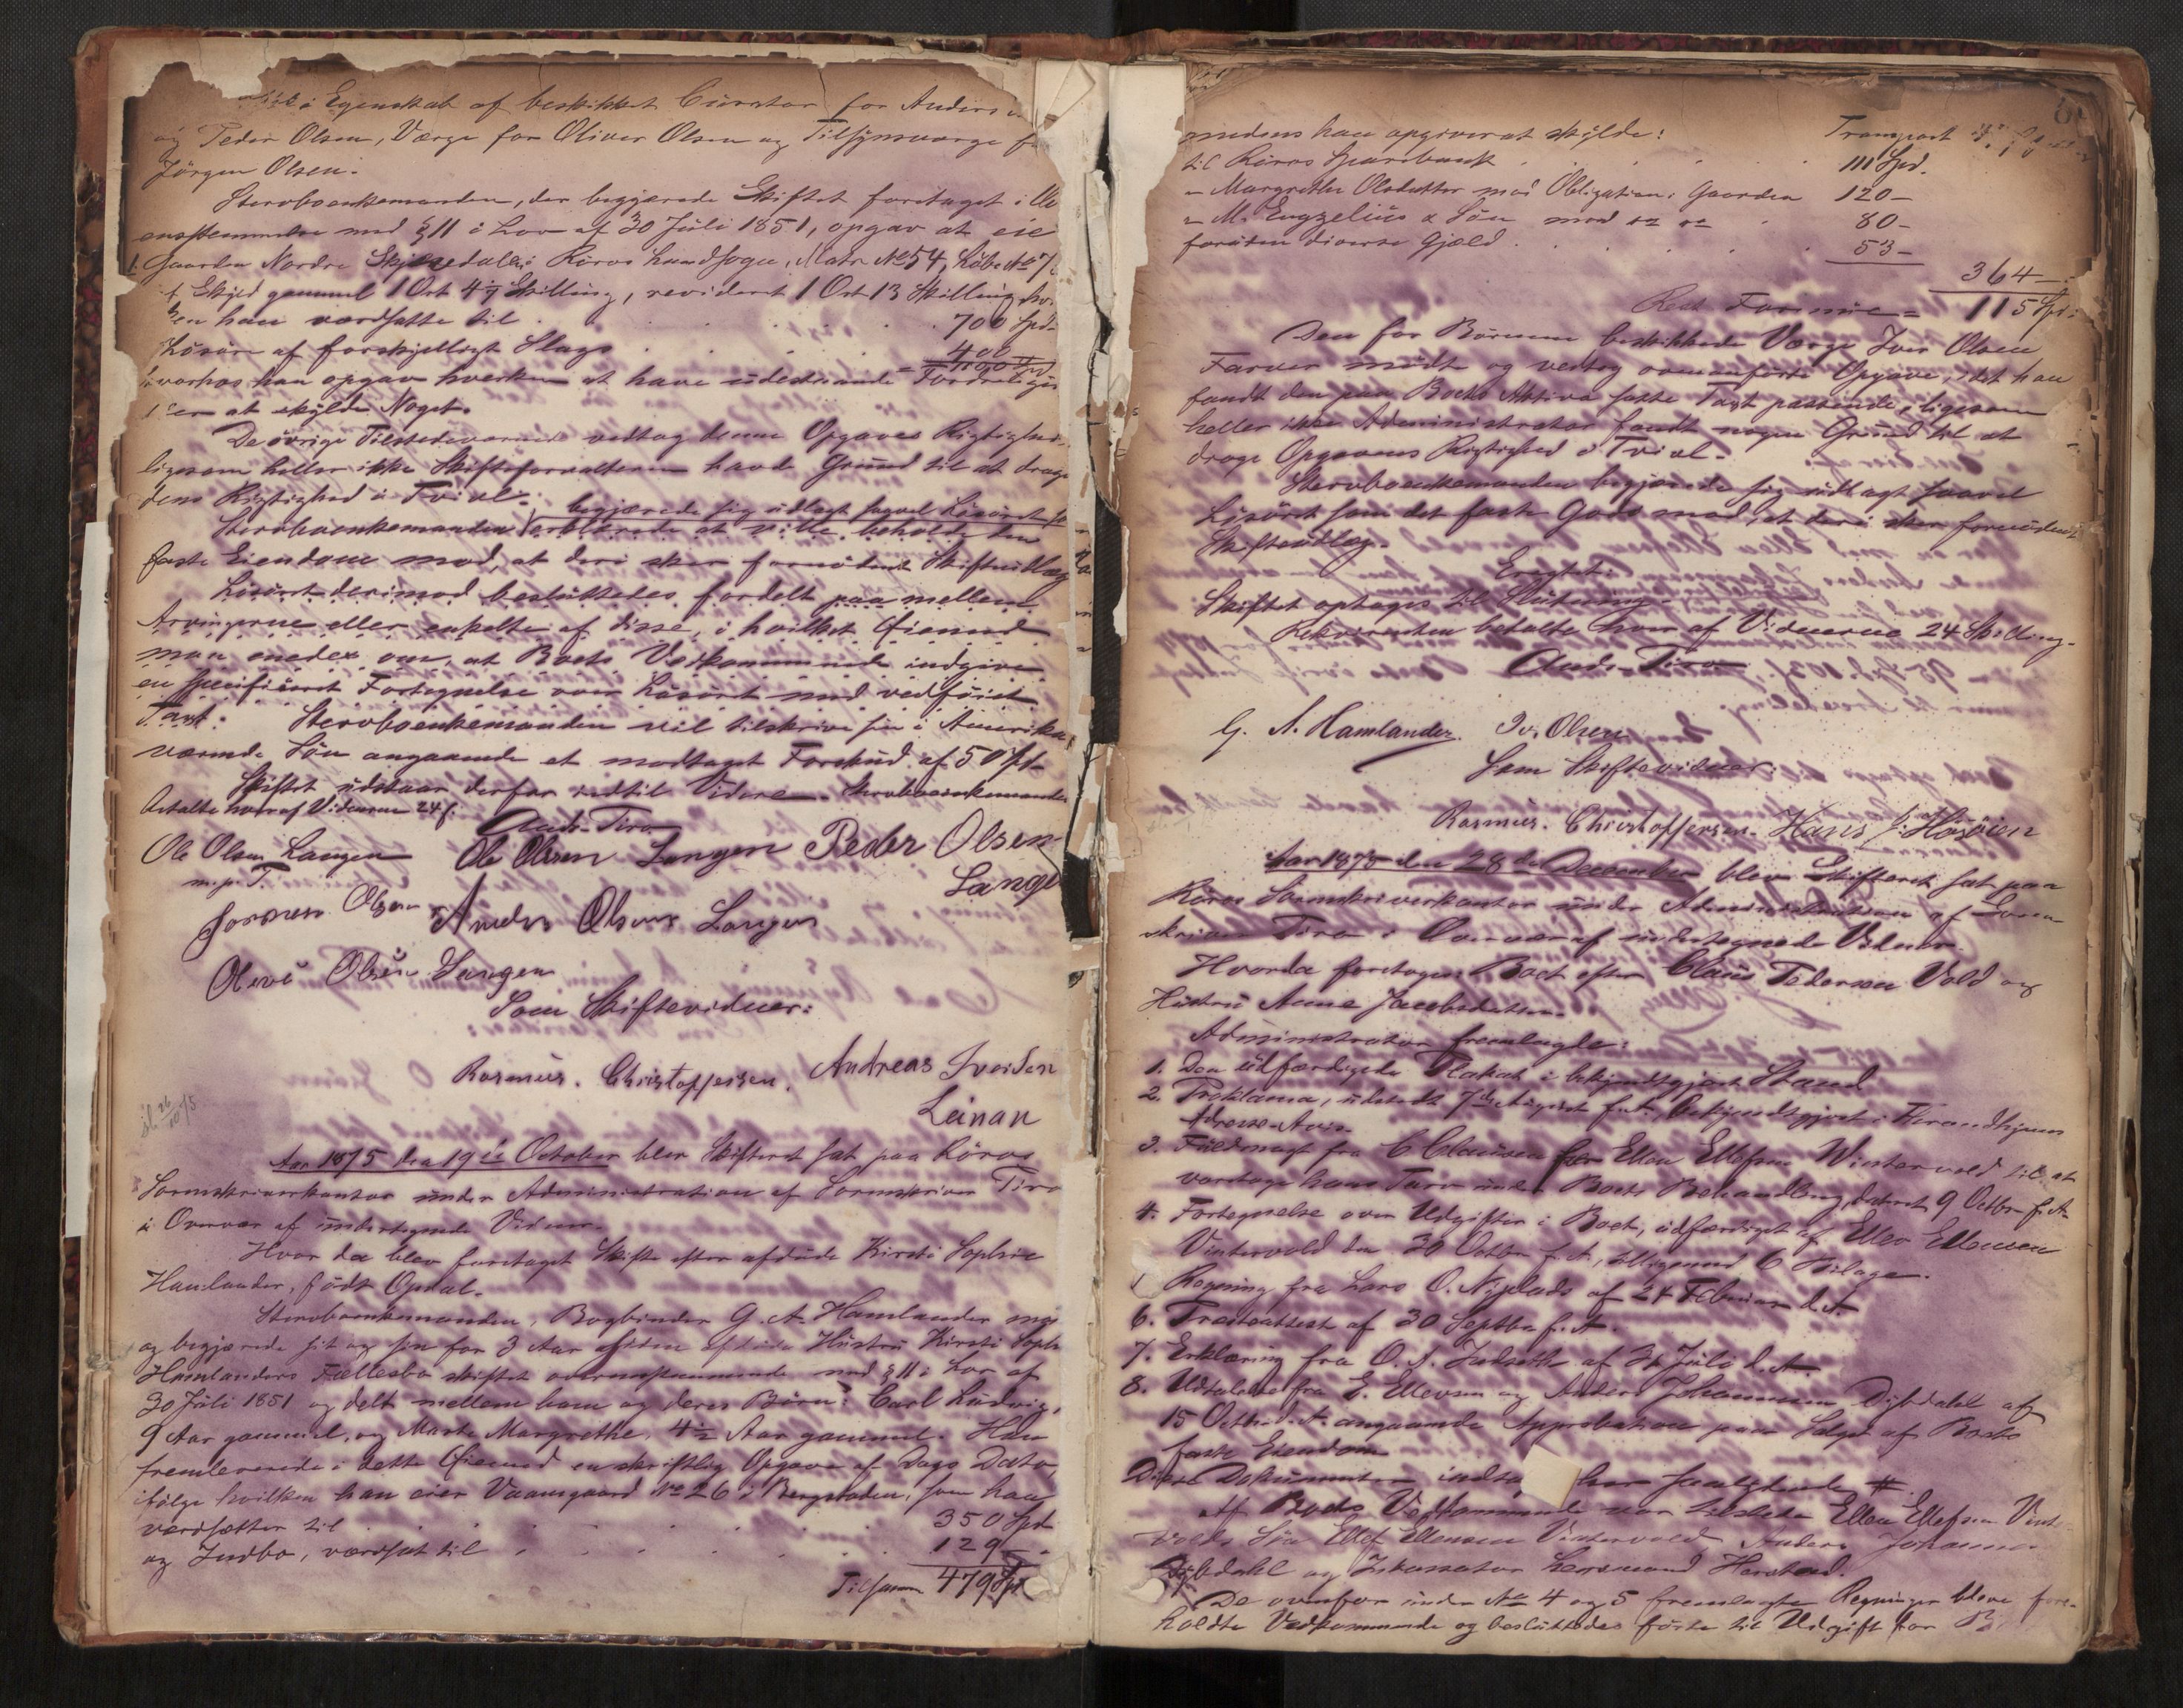 i Egenskab af beskikket Curator for Anders
og Peder Olsen, Værge for Oliver Olsen og Tilsynsværge f
Jörgen Olsen.
Stervboenkemanden, der begjærede Skiftet foretaget i Ov
ensstemmelse med § 11 i Lov af 30 Juli 1851, opgav at eie
1. Gaarden Nordre Skjævdalen i Röros Landsogn, Matr No 54, Löbe No 7
af Skyld gammel 1 Ort 4 4/7 Skilling, revideret 1 Ort 13 Skilling, hvi
en han værdsatte til . . . 700 Spd
Lösöre af forskjelligt Slags . . . 400
= 1100 Spd
hvorhos han opgav hverken at have udestaaende Fordringer
eller at skylde Noget.
De övrige Tilstedeværende vedtog denne Opgaves Rigtighed
ligesom heller ikke Skifteforvalteren havde Grund til at drage
dens Rigtighed i Tvivl.
begjærede sig udlagt saavel Lösöret so
Stervboenkemanden erklærede at ville beholde den
faste Eiendom mod, at deri sker fornödent Skifteudlæg
Lösöret derimod besluttedes fordelt paa mellem
Arvingerne eller enkelte af disse, i hvilket Öiemed
man enedes om, at Boets Vedkommende indgive
en specificeret Fortegnelse over Lösöret med vedföiet
Taxt. Stervboenkemanden vil tilskrive sin i Amerika
værende Sön angaaende et modtaget Forskud af 50 Spd
Skiftet udstaar derfor indtil Videre. Stervboenkemanden
betalte hver af Vidnerne 24 s.
Auds. Tiro
Ole Olsen Langen Ole Olsen Langen Peder Olsen
m. p. T. Lange
Joronen Olsen Anders Olsen Langen
Olevè Olsen Langen
Som Skiftevidner:
Rasmus. Christoffersen. Andreas Iversen
Leinan
Aar 1875 den 19de October blev Skifteret sat paa Röros
Sorenskriverkontor under Administration af Sorenskriver Tiro
i Overvær af undertegnede Vidner.
Hvor da blev foretaget Skifte efter afdöde Kirsti Sophie
Hamlander, födt Opdal.
Stervboenkemanden, Bogbinder G. A. Hamlander mö
og begjærede sit og sin for 3 Aar siden afdöde Hustru Kirsti Soph
Hamlanders Fællesbo skiftet overensstemmende med § 11 i Lov af
30 Juli 1851 og delt mellem ham og deres Börn: Carl Ludvig,
9 Aar gammel, og Marte Margrethe, 4 1/2 Aar gammel. Han
fremleverede i dette Öiemed en skriftlig Opgave af Dags Dato,
ifölge hvilken han eier Vaaningaard No 26 i Bergstaden, som han
værdsætter til . . . 350 Spd
og Indbo, værdsat til . . . 129 -
Tilsammen 479 Spd
Transport
medens han opgiver at skylde:
til Röros Sparebank . . . 111 Spd.
" Margrethe Olsdatter mod Obligation i Gaarden 120 -
" M. Engzelius & Sön mod do do . 80 -
foruden diverse Gjæld . . . 53 -
364 -
Ren Formue = 115 Spd
Den for Börnene beskikkede Værge Iver Olsen
Farver mödte og vedtog ovenanförte Opgave, idet han
fandt den paa Boets Aktiva satte Taxt passende, ligesom
heller ikke Administrator fandt nogen Grund til at
drage Opgavens Rigtighed i Tvivl.
Stervboenkemanden begjærede sig udlagt saavel
Lösöret som det faste Gods mod, at deri sker fornödent
Skifteudlæg.
Eragtet:
Skiftet optages til Slutning.
Rekvirenten betalte hver af Vidnerne 24 Skilling.
Auds. Tiro
G. A. Hamlander. Iv. Olsen
Som Skiftevidner:
Rasmus. Christoffersen. Hans J. Høsöien
Aar 1875 den 28de December blev Skifteret sat paa
Röros Sorenskriverkontor under Administration af Soren-
skriver Tiro i Overvær af undertegnede Vidner.
Hvorda foretages Boet efter Claus Pedersen Vold og
Hustru Anne Jacobsdatter.
Administrator fremlagde:
1. Den udfærdigede Plakat i bekjendtgjort Stand
2. Proklama, udstedt 7de August f. A., bekjendtgjort i Throndhjems
Adresse-Avis.
3. Fuldmagt fra C Clausen for Ellen Ellefsen Wintervold til at
varetage hans Tarv under Boets Behandling, dateret 9 Octbr f. A.
4. Fortegnelse over Udgifter i Boet, udfærdiget af Ellev Ellevsen
Vintervold den 30 Octbr f. A., tilligemed 6 Bilage.
Regning fra Lars O. Nyplads af 24 Februar d. A.
6. Trolovattest af 30 Septbr f. A.
7. Erklæring fra O. J. Indseth af 31 Juli d. A.
8. Udtalelse fra E. Ellevsen og Anders Johannesen Dybdahl af
15 Octbr d. A. angaaende Approbation paa Salget af Boets
faste Eiendom
Disse Dokumenter indta her saalydende #
Af Boets Vedkommende var tilstede Ellen Ellefsen Vint
volds Sön Ellef Ellevsen Vintervold, Anders Johannes
Dybdahl og Inkassator Lensmand Harstad.
De ovenfor under No 4 og 5 fremlagte Regninger bleve fore-
holdte Vedkommende og besluttedes förte til Udgift for B